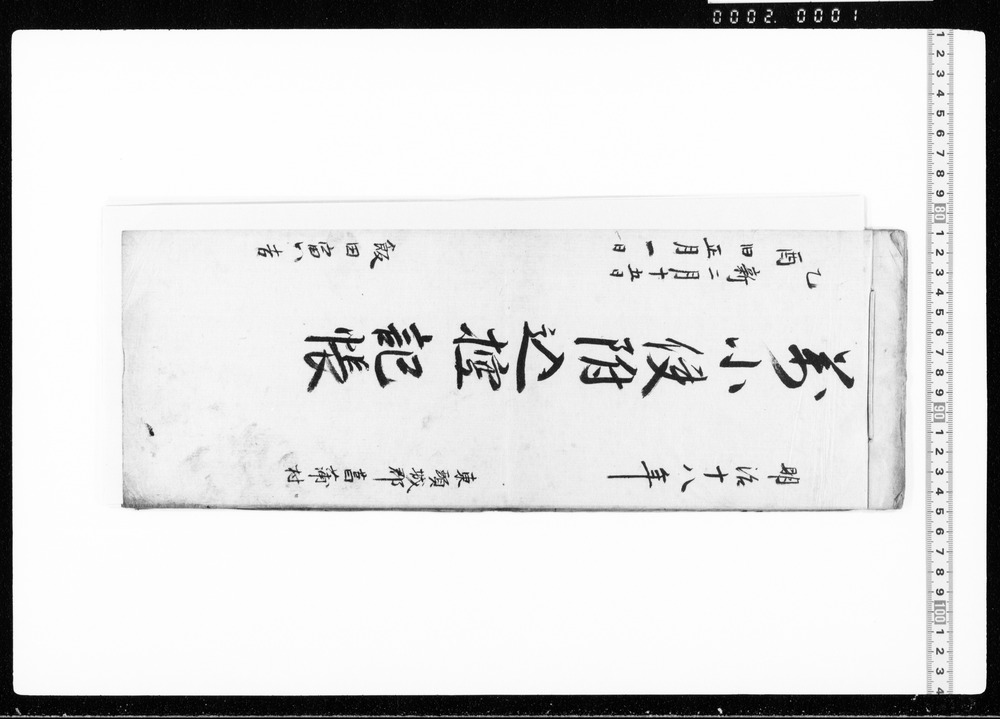 0002. 0001
明治十八年
東頸城郡菖蒲村
萬小使附込控記帳
乙酉
新二月十五日
旧正月一日
飯田